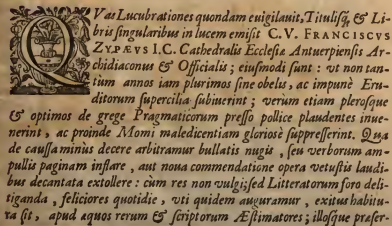 QVas Lucubrationes quondam euigilauit, Titulisq́, & Li-
bris singularibus in lucem emisit C.V. FRANCISCVS
ZYPÆVS I.C. Cathedralis Ecclesiæ Antuerpiensis Ar-
chidiaconus & Officialis; eiusmodi sunt: vt non tan-
tùm annos iam plurimos sine obelo, ac impunè Eru-
ditorum supercilia subiuerint; verùm etiam plerosque
& optimos de grege Pragmaticorum presso pollice plaudentes inue-
nerint, ac proinde Momi maledicentiam gloriosè suppresserint. Qua
de caussa minùs decere arbitramur bullatis nugis, seu verborum am-
pullis paginam inflare, aut noua commendatione opera vetustis laudi-
bus decantata extollere: cùm res non vulgi; sed Litteratorum foro deli-
tiganda, feliciores quotidie, vti quidem auguramur, exitus habitu-
ra sit, apud æquos rerum & scriptorum Æstimatores; illosque præser-